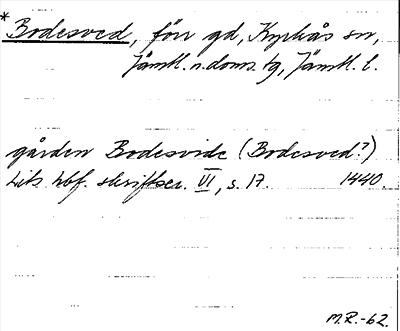 *Bodesved, förr gd, Kyrkås sn,
Jämtl. n. doms. tg, Jämtl. l.
gården Bodesvide (Bodesved?)
Lits hbf. skriftser. VI, s. 17. 1440.
M.R.-62.